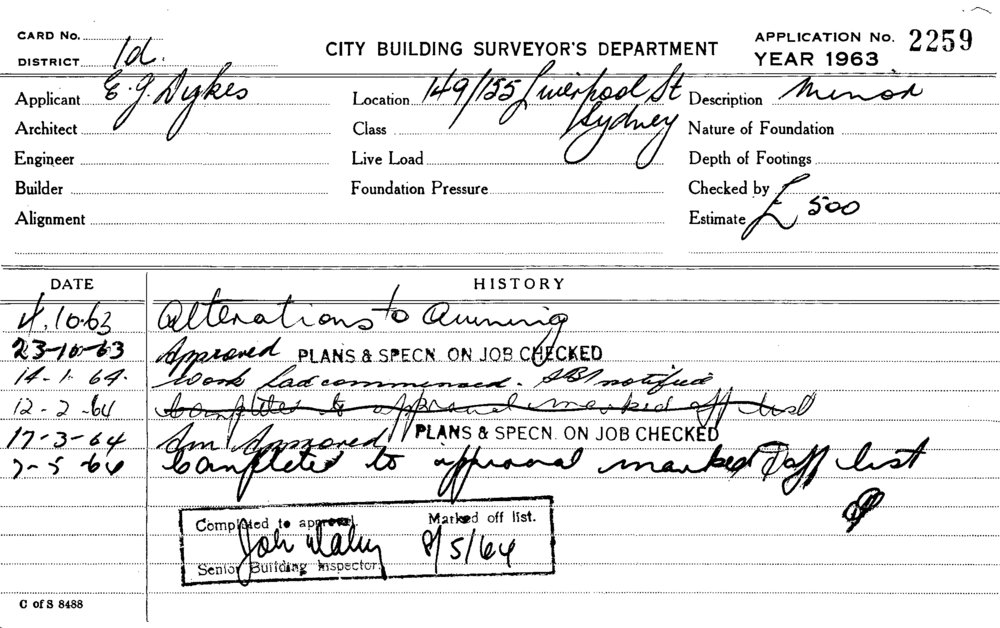 CARD No.
DISTRICT 1d.
CITY BUILDING SURVEYOR'S DEPARTMENT
APPLICATION No. 2259
YEAR 1963
Applicant E. J. Dykes Location 149/155 Liverpool St Description Minor
Sydney
Architect Class Nature of Foundation
Engineer Live Load Depth of Footings
Builder Foundation Pressure Checked by
Alignment Estimate £ 500
DATE HISTORY
4.10.63 Alterations to Awning
23-10-63 Approved PLANS & SPECN. ON JOB CHECKED
14-1-64. Work had commenced. SBI notified
12-2-64 Completed to approval marked off list
17-3-64 Am Approved PLANS & SPECN. ON JOB CHECKED
7-5-64 Completed to approval marked off list
Completed to approval. Marked off list.
8/5/64
Senior Building Inspector.
C of S 8488